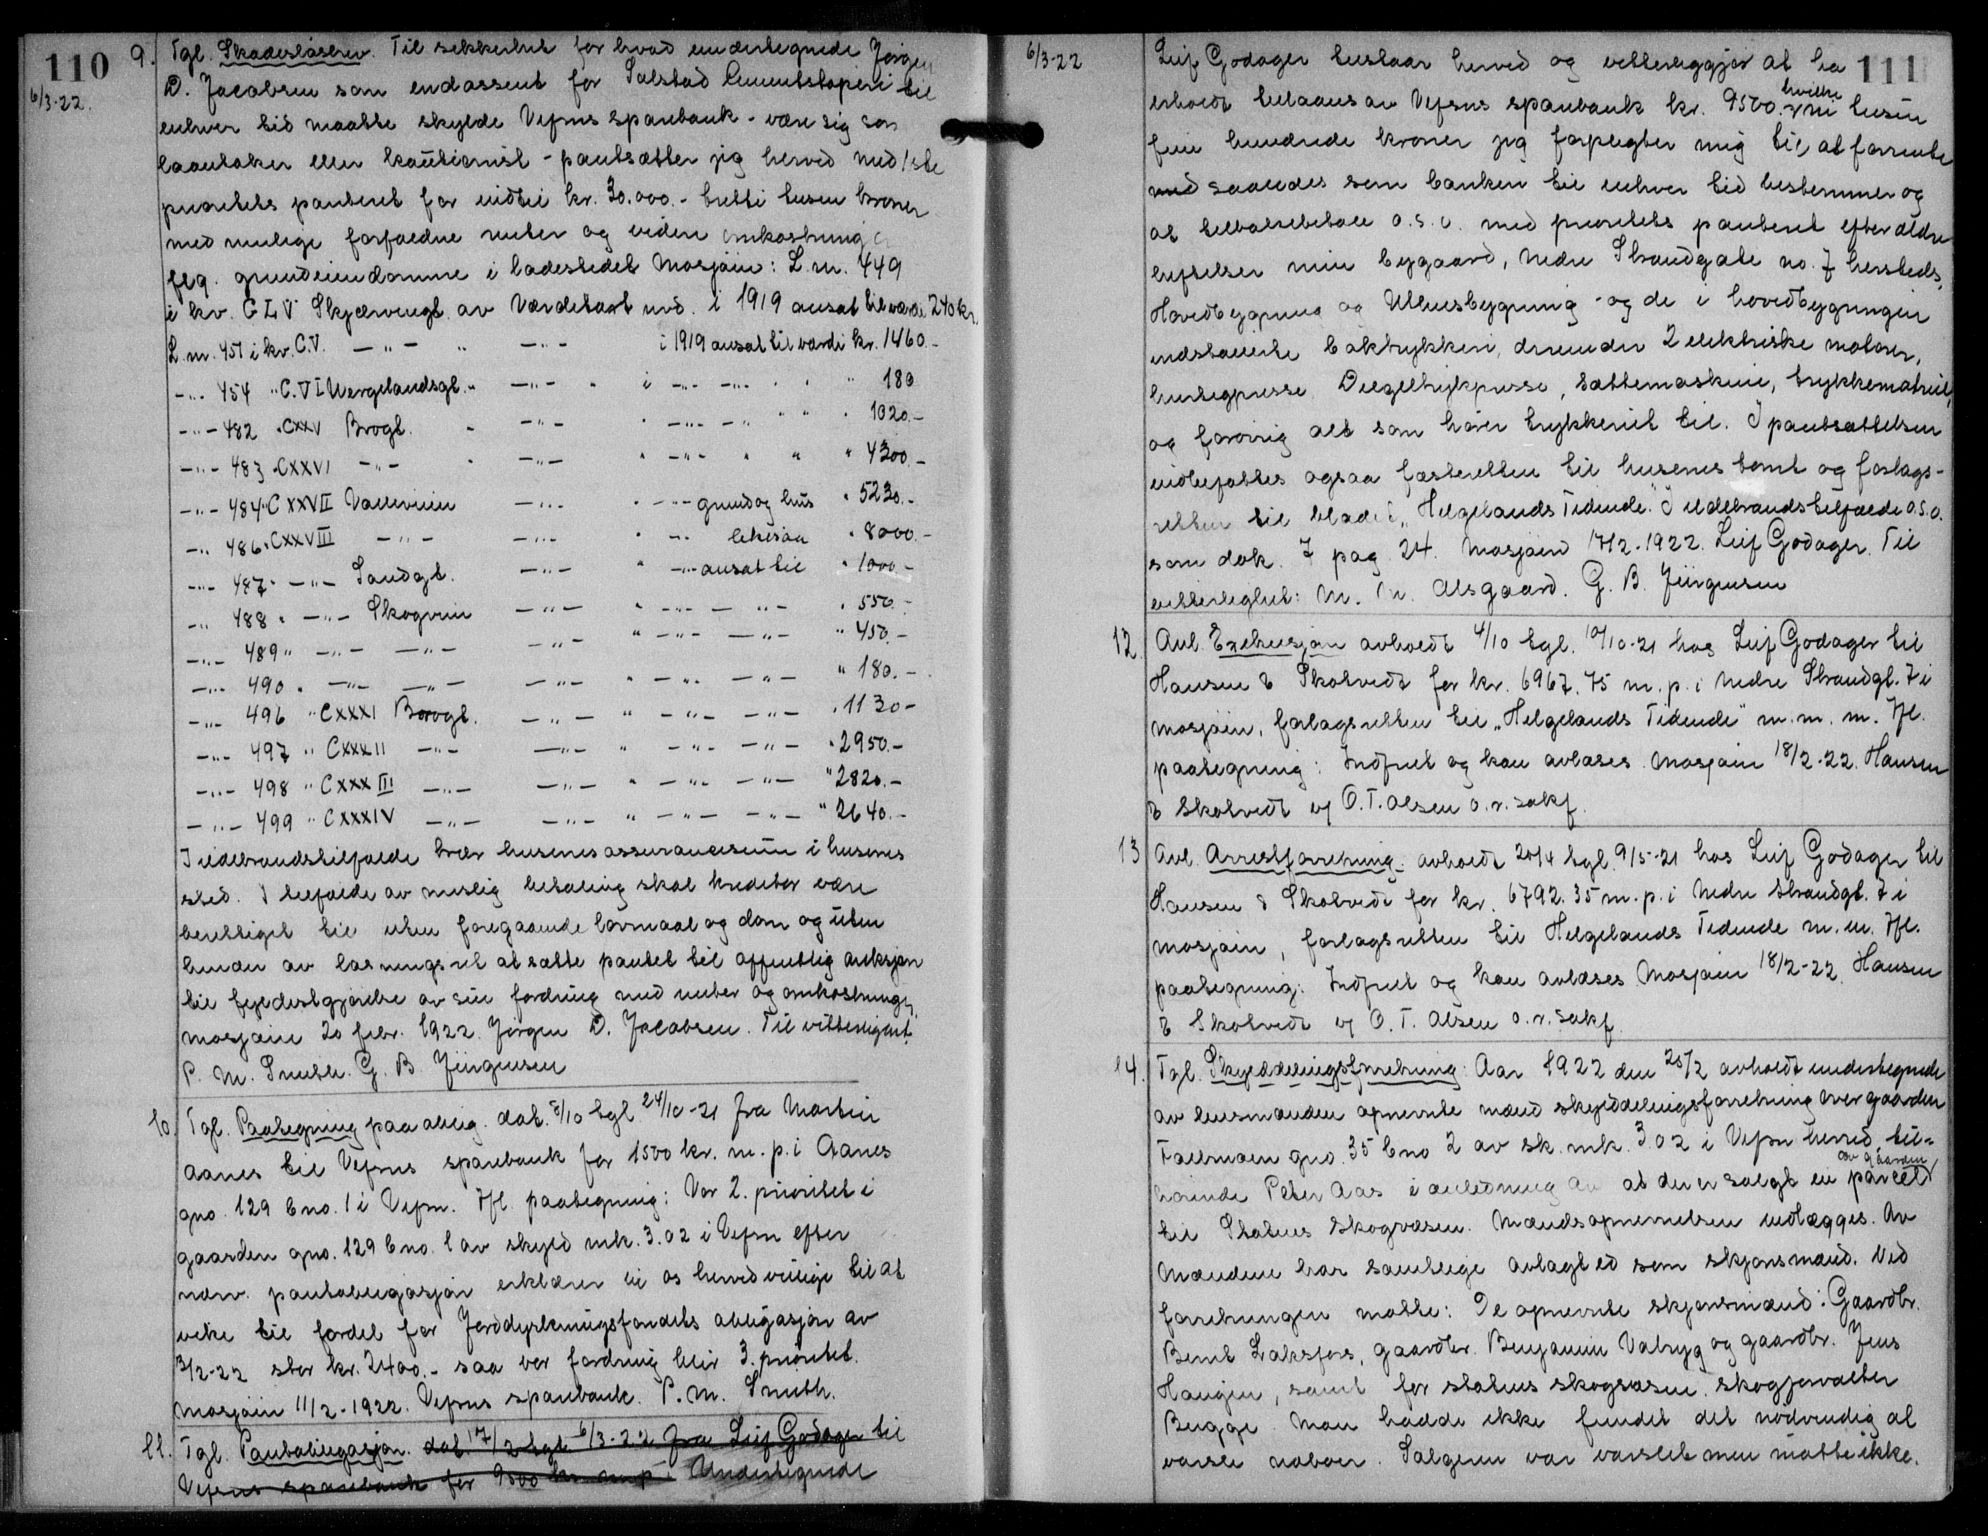 110
6/3-22.
9. Tgl. Skadeslösbrev. Til sikkerhet for hvad undertegnede Jörgen
D. Jacobsen som endossent for Salstad Cementstöperi til
enhver tid maatte skylde Vefsns sparebank - være sig som
laantaker eller kautionist - pantsætter jeg herved med 1ste
prioritets panteret for indtil kr. 30.000.- tretti tusen kroner
med mulige forfaldne renter og videre omkostninger
flg. grundeiendomme i ladestedet Mosjöen: L.nr. 449
i kv. CLV Skjervengt. av Værdetakst nvd. i 1919 ansat til værdi 240 kr.
L.nr. 451 i kv. C.V. — " — " — " — i 1919 ansat til værdi kr. 1460.-
- " - 454 " C.VI Wergelandsgt. " — " — " i — " — — " — " " 180
- " - 482 " CXXV Brogt. " — " — " — " — — " — " " " 1020.-
- " - 483 " CXXVI — " — " — " — " — " — " " " 4300.-
- " - 484 " CXXVII Vollveien — " — " — " — grund og hus " 5230.-
- " - 486 " CXXVIII — " — — " — " — " — likesaa " 8000.-
- " - 487 " — " — Sandgt. — " — " — " — ansat til " 1000.-
- " - 488 " — " — Skogveien — " — " — " — — " — " 550.-
- " - 489 " — " — — " — — " — " — " — — " — " 450.-
- " - 490 " — " — — " — — " — " — " — — " — " 180.-
- " - 496 " CXXXI Brogt. — " — " — " — — " — " 1130.-
- " - 497 " CXXXII — " — — " — " — " — — " — " 2950.-
- " - 498 " CXXXIII — " — — " — " — " — — " — " 2820.-
- " - 499 " CXXXIV — " — — " — " — " — — " — " 2640.-
I ildebrandstilfælde trær husenes assurancesum i husenes
sted. I tilfælde av mislig betaling skal kreditor være
berettiget til uten foregaaende lovmaal og dom og uten
hinder av lösningsret at sætte pantet til offentlig auksjon
til fyldestgjörelse av sin fordring med renter og omkostninger.
Mosjöen 20 febr. 1922. Jörgen D. Jacobsen. Til vitterlighet:
P. M. Smith. G. B. Jürgensen
10. Tgl. Paategning paa oblig. dat. 8/10 tgl 24/10-21 fra Martin
Aanes til Vefsns sparebank for 1500 kr. m. p. i Aanes
gno. 129 bno. 1 i Vefsn. Ifl. paategning: Vor 2. prioritet i
gaarden gno. 129 bno. 1 av skyld mk. 3.02 i Vefsn efter
nærv. pantobligasjon erklærer vi os herved villige til at
vike til fordel for Jorddyrkningsfondets obligasjon av
3/2-22 stor kr. 2400.- saa vor fordring blir 3. prioritet.
Mosjöen 11/2-1922. Vefsns sparebank. P. M. Smith.
11. Tgl. Pantobligasjon. dat. 17/2 tgl 6/3-22 fra Leif Godager til
Vefsns sparebank for 9500 kr. m. p. i Undertegnede
6/3-22
111
Leif Godager tilstaar herved og vitterliggjör at ha
erholdt tillaans av Vefsns sparebank kr. 9500. ni tusen
hvilke
fem hundrede kroner jeg forpligter mig til at forrente
med saaledes som banken til enhver tid bestemmer og
at tilbakebetale o.s.v. med prioritets panteret efter ældre
heftelser min bygaard, Nedre Strandgate no. 7 hersteds,
Hovedbygning og Uthusbygning - og de i hovedbygningen
indstallerte boktrykkeri, derunder 2 elektriske motorer,
hurtigpresse Diegeltrykpresse, Sættemaskine, trykkemateriel,
og forövrig alt som hörer trykkeriet til. I pantsættelsen
indbefattes ogsaa fæsteretten til husenes tomt og forlags-
retten til bladet "Helgelands Tidende". I ildebrandstilfælde o.s.v.
som dok. 7 pag. 24. Mosjöen 17/2-1922. Leif Godager. Til
vitterlighet: M. Alsgaard. G. B. Jürgensen
12. Avl. Exekusjon avholdt 4/10 tgl. 10/10-21 hos Leif Godager til
Hansen & Skotvedt for kr. 6967.75 m. p. i Nedre Strandgt. 7 i
Mosjöen, forlagsretten til "Helgelands Tidende" m. m. m. Ifl.
paategning: Indfriet og kan avlæses. Mosjöen 18/2-22. Hansen
& Skotvedt v/ O. T. Olsen o.r.sakf.
13 Avl. Arrestforretning avholdt 20/4 tgl. 9/5-21 hos Leif Godager til
Hansen & Skotvedt for kr. 6792.35 m. p. i Nedre Strandgt. 7 i
Mosjöen, forlagsretten til Helgelands Tidende m. m. Ifl.
paategning: Indfriet og kan avlæses Mosjöen 18/2-22. Hansen
& Skotvedt v/ O. T. Olsen o.r.sakf.
14. Tgl. Skylddelingsforretning: Aar 1922 den 20/2 avholdt undertegnede
av lensmanden opnevnte mænd skylddelingsforretning over gaarden
Fallmoen gno. 35 bno 2 av sk. mk. 3.02 i Vefsn herred til-
hörende Peter Aas i anledning av at der er solgt en parcel
av gaarden
til Statens Skogvæsen. Mændsopnevnelsen vedlægges. Av
Mændene har samtlige avlagt ed som skjönsmænd. Ved
forretningen mötte: De opnevnte skjönsmænd: Gaardbr.
Bernt Laksfors, gaardbr. Benjamin Valryg og gaardbr. Jens
Haugen, samt for statens skogvæsen: skogforvalter
Bugge. Man hadde ikke fundet det nödvendig at
varsle naboer. Sælgeren var varslet men mötte ikke.